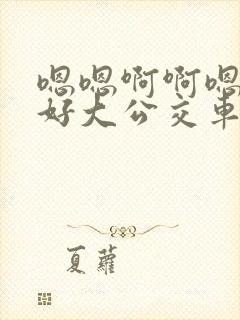 嗯嗯啊啊嗯
好大公交车
夏萝